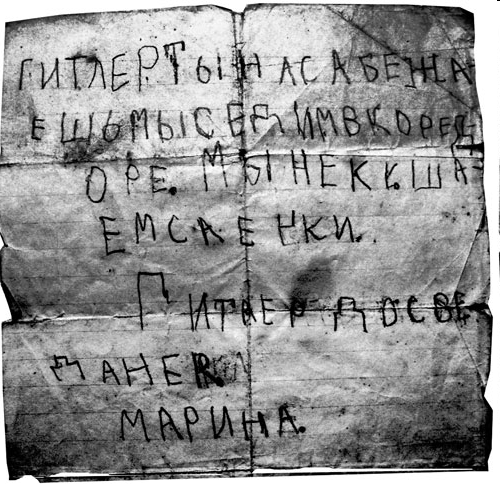 ГИТЛЕРТЫНАСАБЕЖА
ЕШЬМЫСЕДИМВКОРЕД
ОРЕ. МЫНЕКУША
ЕМСАЕНКИ.
ГИТЛЕР ДОСВЕ
МАРИНА.